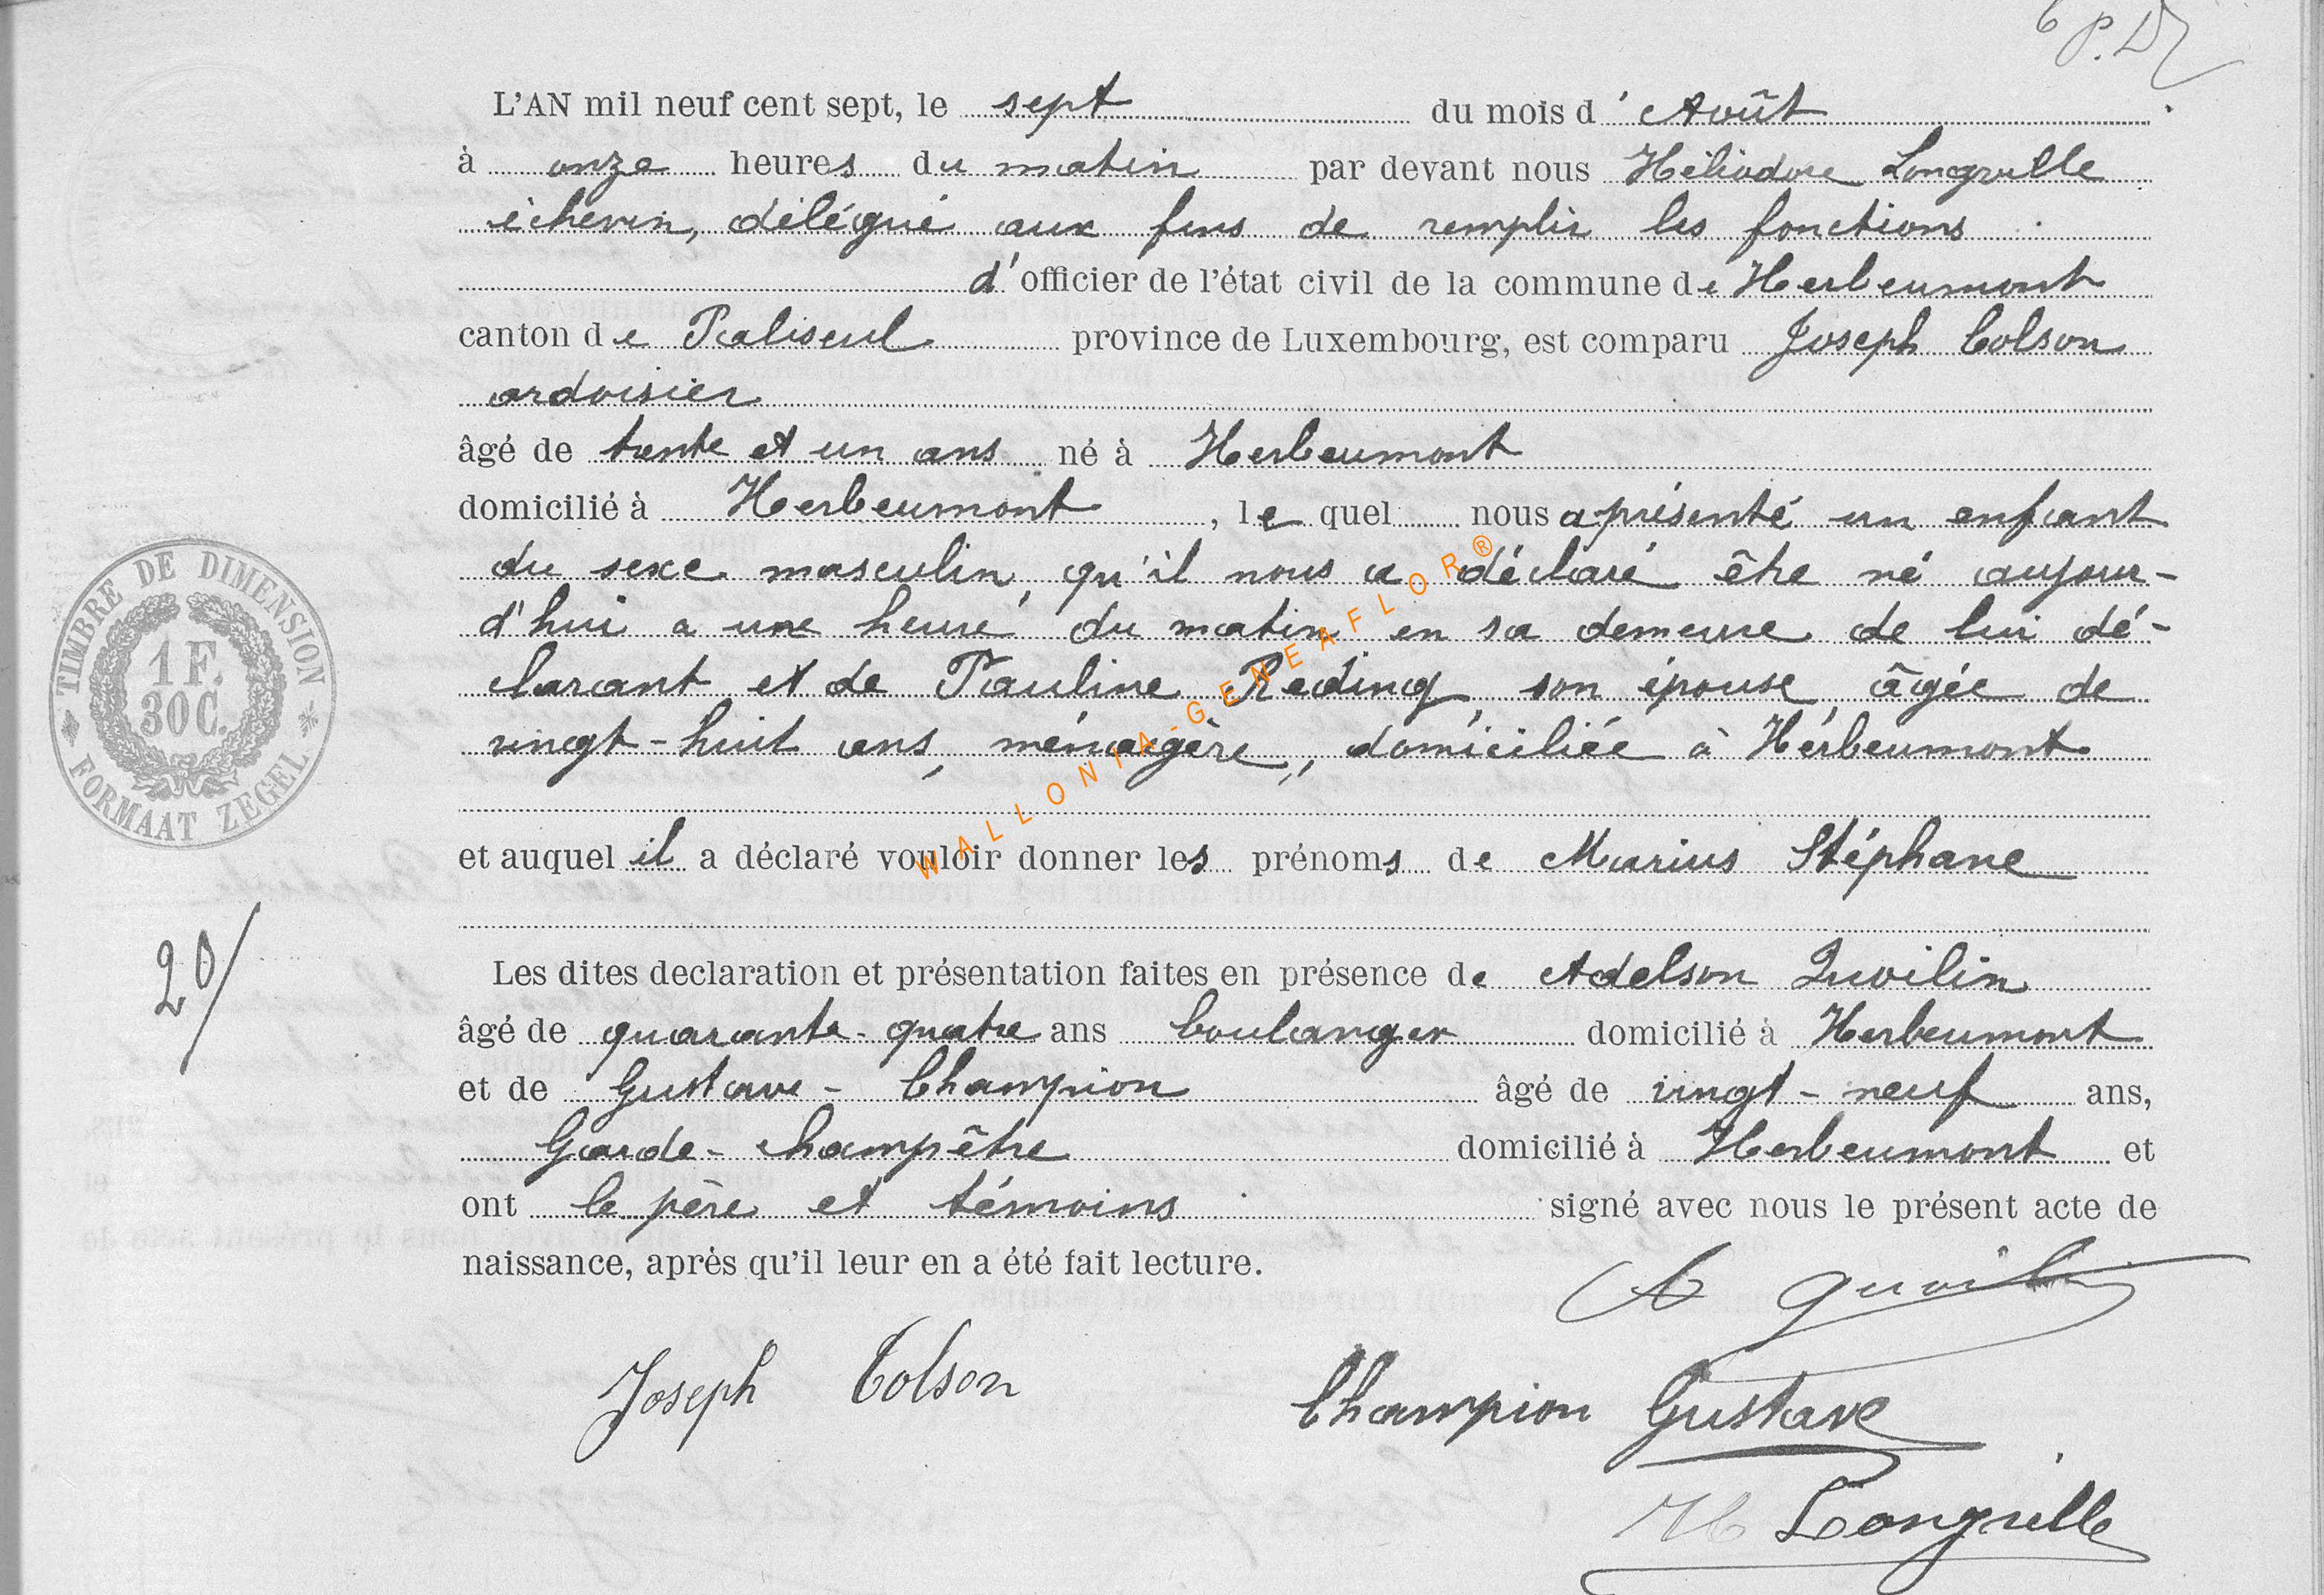 6 P.
L'AN mil neuf cent sept, le sept du mois d'Août
à onze heures du matin par devant nous Héliodore Longville
échevin, délégué aux fins de remplir les fonctions
d'officier de l'état civil de la commune de Herbeumont
canton de Paliseul province de Luxembourg, est comparu Joseph Colson
ardoisier
âgé de trente et un ans né à Herbeumont
domicilié à Herbeumont, le quel nous a présenté un enfant
du sexe masculin, qu'il nous a déclaré être né aujour-
d'hui a une heure du matin en sa demeure de lui dé-
clarant et de Pauline Reding, son épouse, âgée de
vingt-huit ans, ménagère, domiciliée à Herbeumont
et auquel il a déclaré vouloir donner les prénoms de Marius Stéphane
Les dites declaration et présentation faites en présence de Adelson Quoilin
âgé de quarante-quatre ans boulanger domicilié à Herbeumont
et de Gustave - Champion âgé de vingt-neuf ans,
Garde-champêtre domicilié à Herbeumont et
ont le père et témoins signé avec nous le présent acte de
naissance, après qu'il leur en a été fait lecture.
A Quoilin
Joseph Colson
Champion Gustave
H Longville
TIMBRE DE DIMENSION
1 F.
30 C.
FORMAAT ZEGEL
20/
WALLONIA-GENEAFLOR®